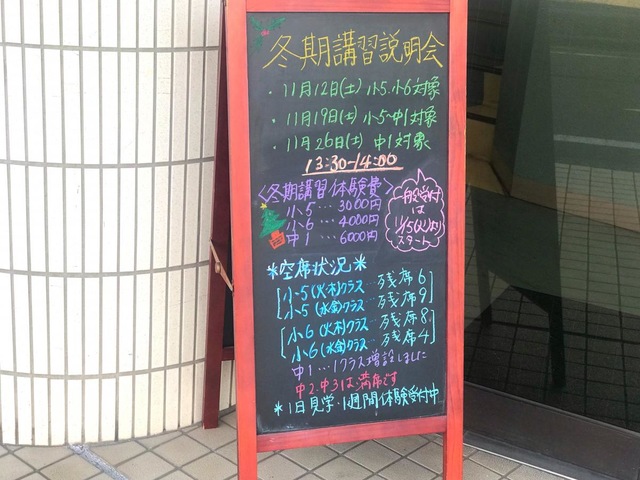 冬期講習説明会
・11月12日(土) 小5.小6対象
・11月19日(土) 小5~中1対象
・11月26日(土) 中1対象
13:30-14:00
<冬期講習体験費>
小5…3000円
小6…4000円
中1…6000円
一般受付
は
11/15(火)より
スタート
*空席状況*
小5(火木)クラス…残席6
小5(水金)クラス…残席9
小6(火木)クラス…残席8
小6(水金)クラス…残席4
中1…1クラス増設しました
中2.中3は満席です
*1日見学・1週間体験受付中